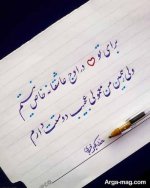 برای تو در اوج عاشقانه‌ها نیستم
ولی همین من معمولی عجیب دوستت دارم
Arga-mag.com